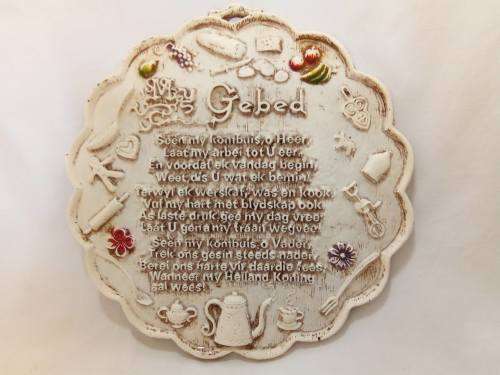 My Gebed
Seën my kombuis, o Heer,
Laat my arbei tot U eer,
En voordat ek vandag begin,
Weet dis U wat ek bemin!
Terwyl ek werskaf, was en kook,
Vul my hart met blydskap ook,
As laste druk, gee my dag vree,
Laat U genâ my traan wegvee!
Seën my kombuis, o Vader,
Trek ons gesin steeds nader,
Berei ons harte vir daardie fees,
Wanneer my Heiland Koning
sal wees!